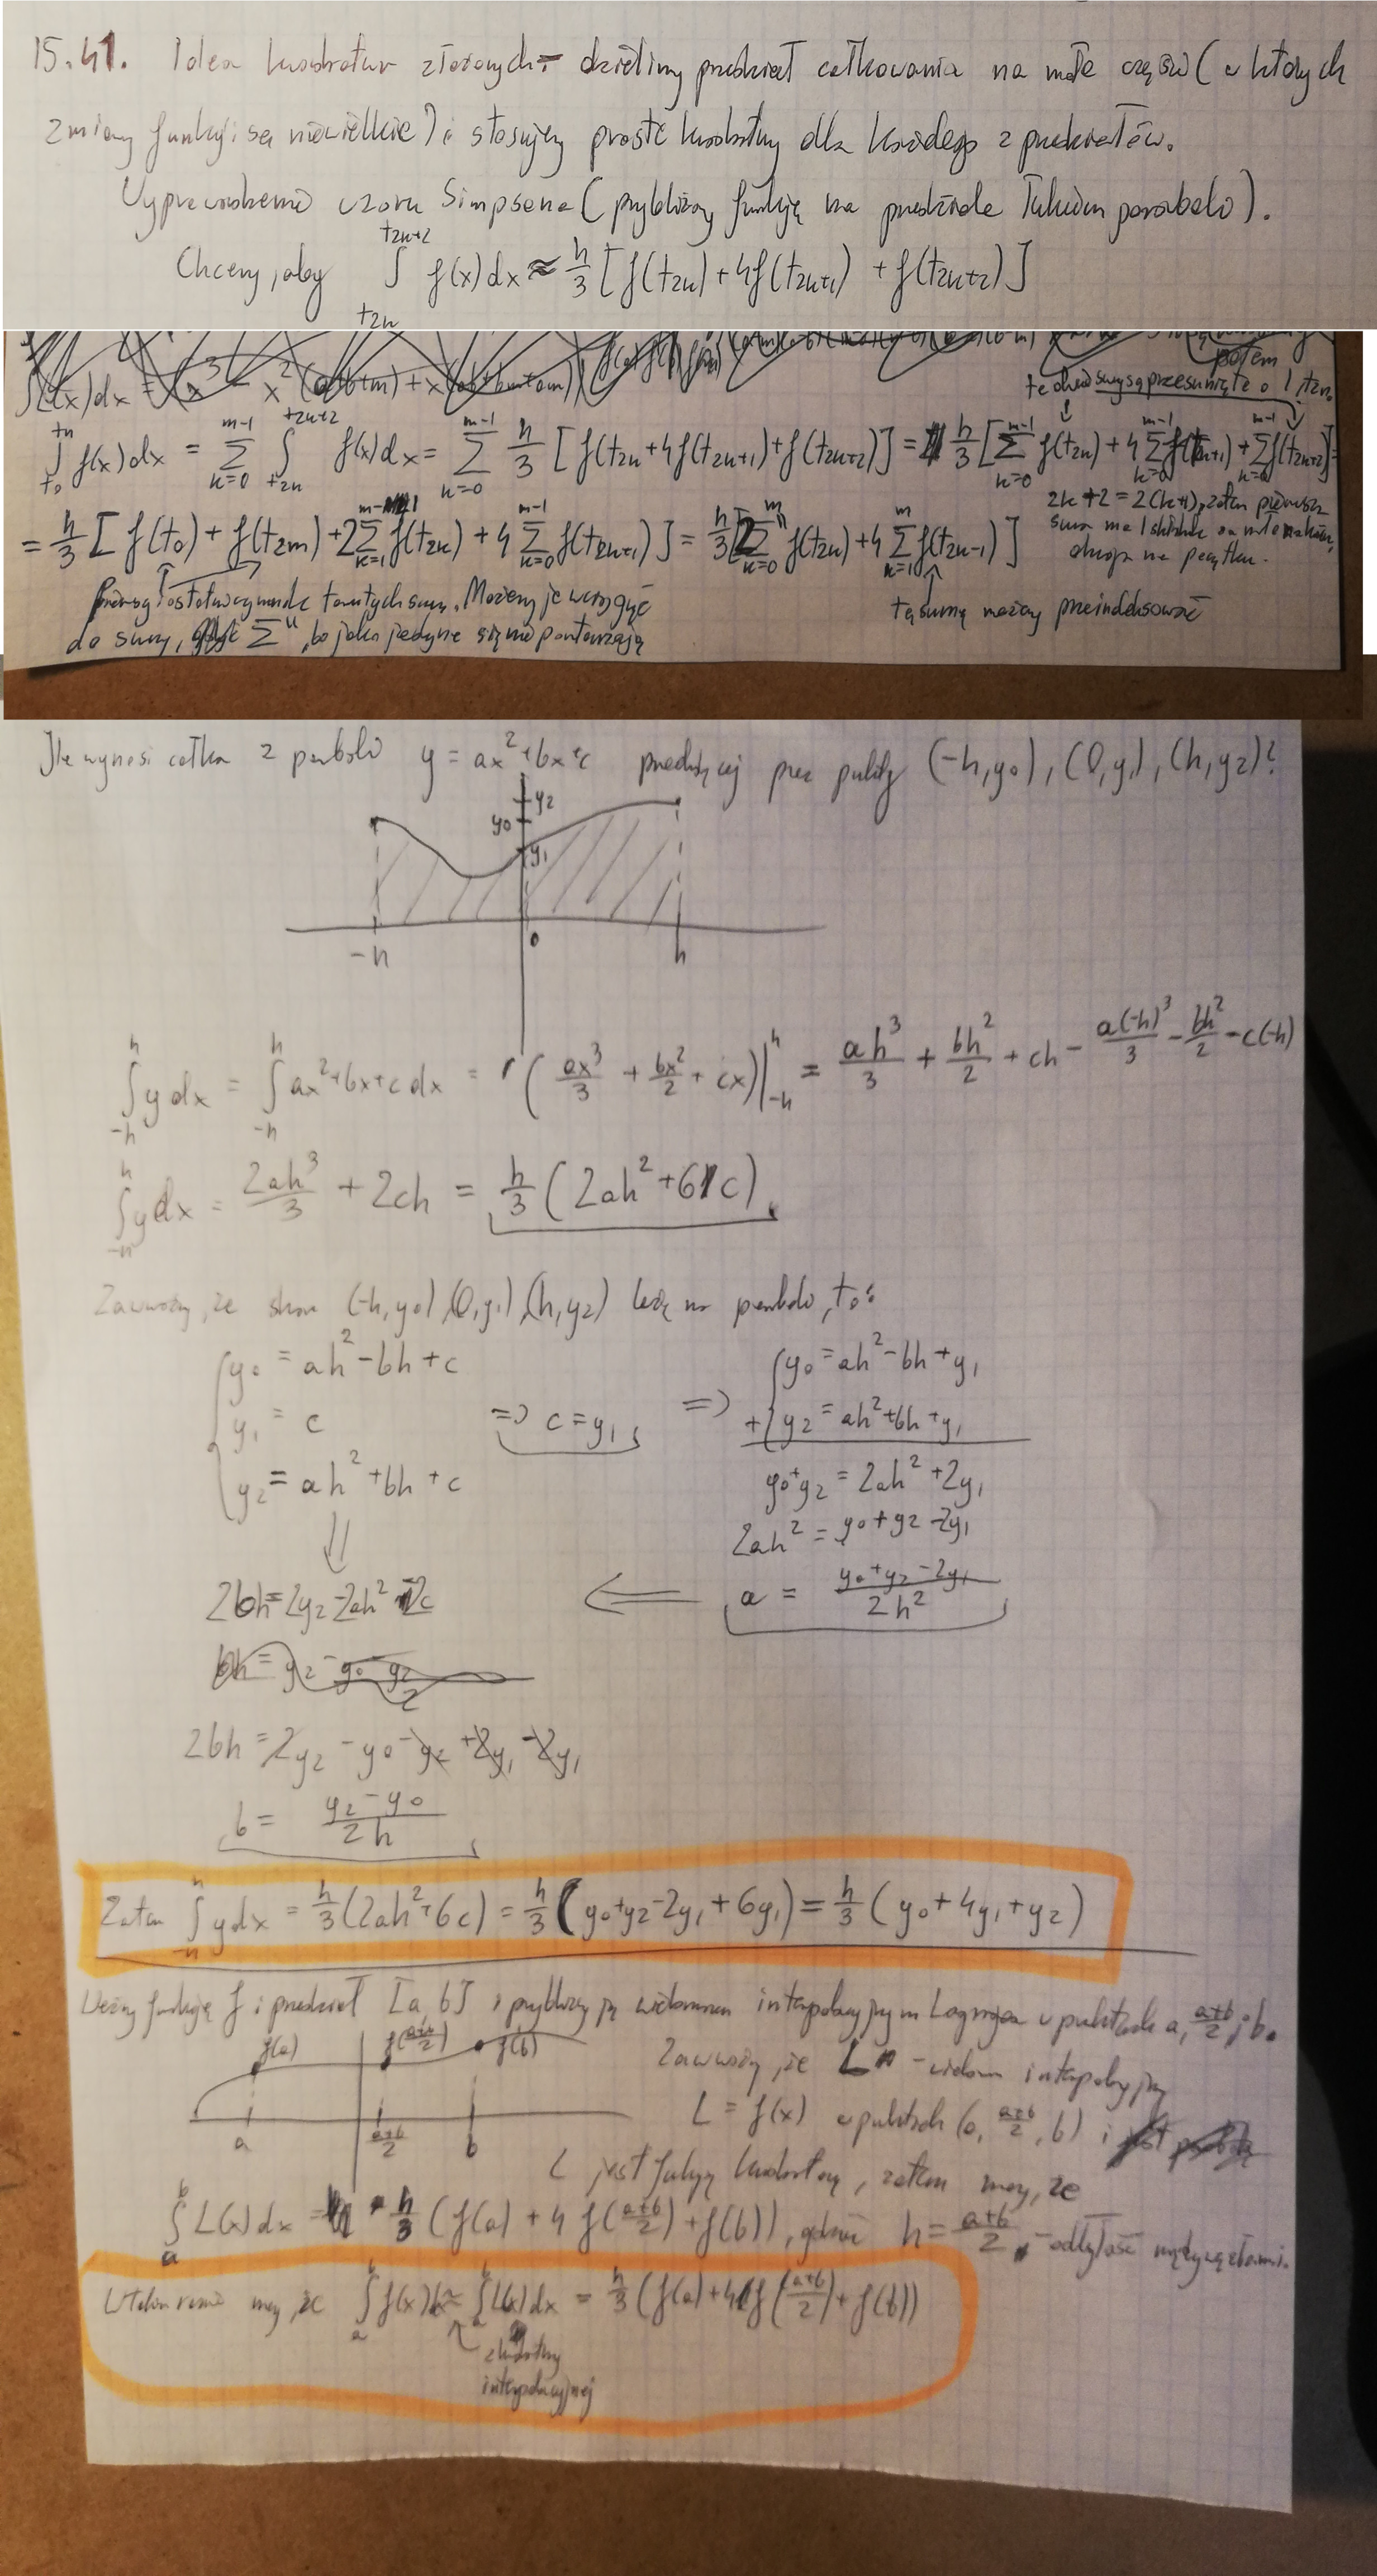 15.41. Idea kwadratur złożonych - dzielimy przedział całkowania na małe części (w których
zmiany funkcji są niewielkie) i stosujemy proste kwadratury dla każdego z przedziałów.
Wyprowadzenie wzoru Simpsona (przybliżamy funkcję na przedziale parabolą).
Chcemy, aby ∫_{t2k}^{t2k+2} f(x)dx ≈ h/3 [f(t2k) + 4f(t2k+1) + f(t2k+2)]
potem
są przesunięte o 1
∫_{t0}^{tn} f(x)dx = Σ_{k=0}^{m-1} ∫_{t2k}^{t2k+2} f(x)dx = Σ_{k=0}^{m-1} h/3 [f(t2k + 4f(t2k+1) + f(t2k+2)] = h/3 [Σ_{k=0}^{m-1} f(t2k) + 4 Σ_{k=0}^{m-1} f(t2k+1) + Σ_{k=0}^{m-1} f(t2k+2)] =
2k+2 = 2(k+1), zatem pierwsza
suma ma 1 składnik
druga na początku.
= h/3 [f(t0) + f(t2m) + 2 Σ_{k=1}^{m-1} f(t2k) + 4 Σ_{k=0}^{m-1} f(t2k+1)] = h/3 [2 Σ''_{k=0}^{m} f(t2k) + 4 Σ_{k=1}^{m} f(t2k-1)]
pierwszy i ostatni tamtych sum. Możemy je wciągnąć
do sumy, Σ'', bo jako jedyne się nie powtarzają
tą sumę możemy przeindeksować
Ile wynosi całka z paraboli y = ax² + bx + c przechodzącej przez punkty (-h, y0), (0, y1), (h, y2)?
y2
y0
y1
-h 0 h
∫_{-h}^{h} y dx = ∫_{-h}^{h} ax² + bx + c dx = (ax³/3 + bx²/2 + cx)|_{-h}^{h} = ah³/3 + bh²/2 + ch - a(-h)³/3 - bh²/2 - c(-h)
∫_{-h}^{h} y dx = 2ah³/3 + 2ch = h/3 (2ah² + 6c)
Zauważmy, że skoro (-h, y0), (0, y1), (h, y2) leżą na paraboli, to:
y0 = ah² - bh + c
y1 = c => c = y1 =>
y2 = ah² + bh + c
y0 = ah² - bh + y1
+ y2 = ah² + bh + y1
y0 + y2 = 2ah² + 2y1
2ah² = y0 + y2 - 2y1
a = y0 + y2 - 2y1 / 2h²
2bh = 2y2 - 2ah² - 2c
2bh = 2y2 - y0 - y2 + 2y1 - 2y1
b = y2 - y0 / 2h
Zatem ∫_{-h}^{h} y dx = h/3 (2ah² + 6c) = h/3 (y0 + y2 - 2y1 + 6y1) = h/3 (y0 + 4y1 + y2)
Weźmy funkcję f i przedział [a, b] i przybliżmy ją wielomianem interpolacyjnym Lagrange'a w punktach a, a+b/2 i b.
f(a) f(a+b/2) f(b)
a a+b/2 b
Zauważmy, że L - wielom interpolacyjny
L = f(x) w punktach (a, a+b/2, b) i
L jest funkcją kwadratową, zatem mamy, że
∫_{a}^{b} L(x)dx = h/3 (f(a) + 4f(a+b/2) + f(b)), gdzie h = a+b/2 - odległość między węzłami.
mamy, że ∫_{a}^{b} f(x)dx ≈ ∫_{a}^{b} L(x)dx = h/3 (f(a) + 4f(a+b/2) + f(b))
z kwadratury
interpolacyjnej